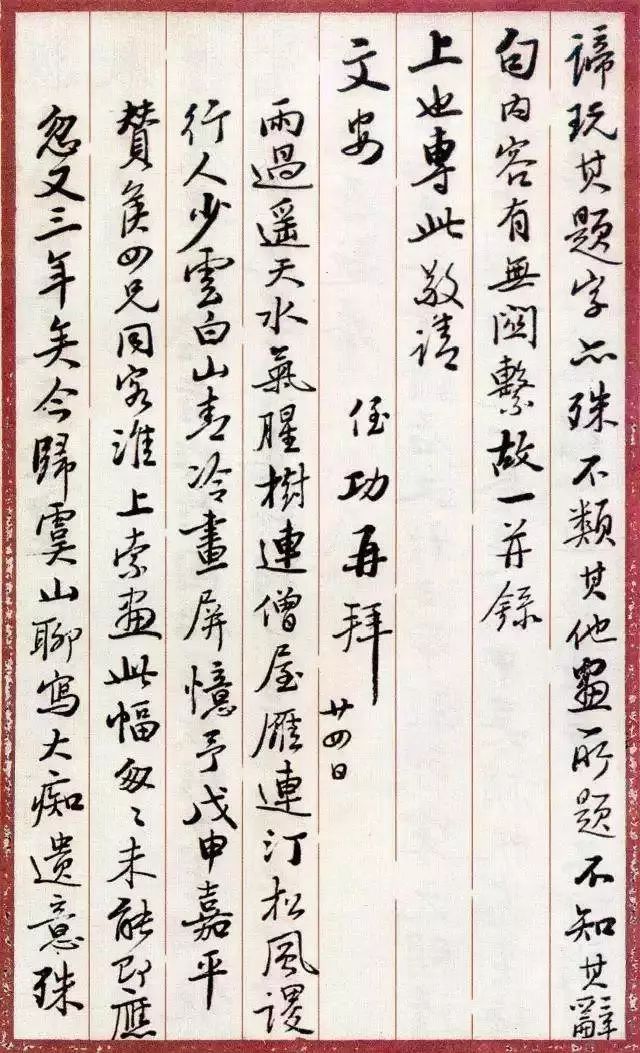 諦玩其題字亦殊不類其他畫所題不知其辭
句内容有無關繫故一并錄
上也專此敬請
文安
侄功再拜
廿四日
雨過遥天水氣腥樹連僧屋雁連汀松風謖
行人少雲白山青冷畫屏憶予戊申嘉平
贊侯四兄同客淮上索畫此幅匆〻未能即應
忽又三年矣今歸虞山聊寫大痴遺意殊